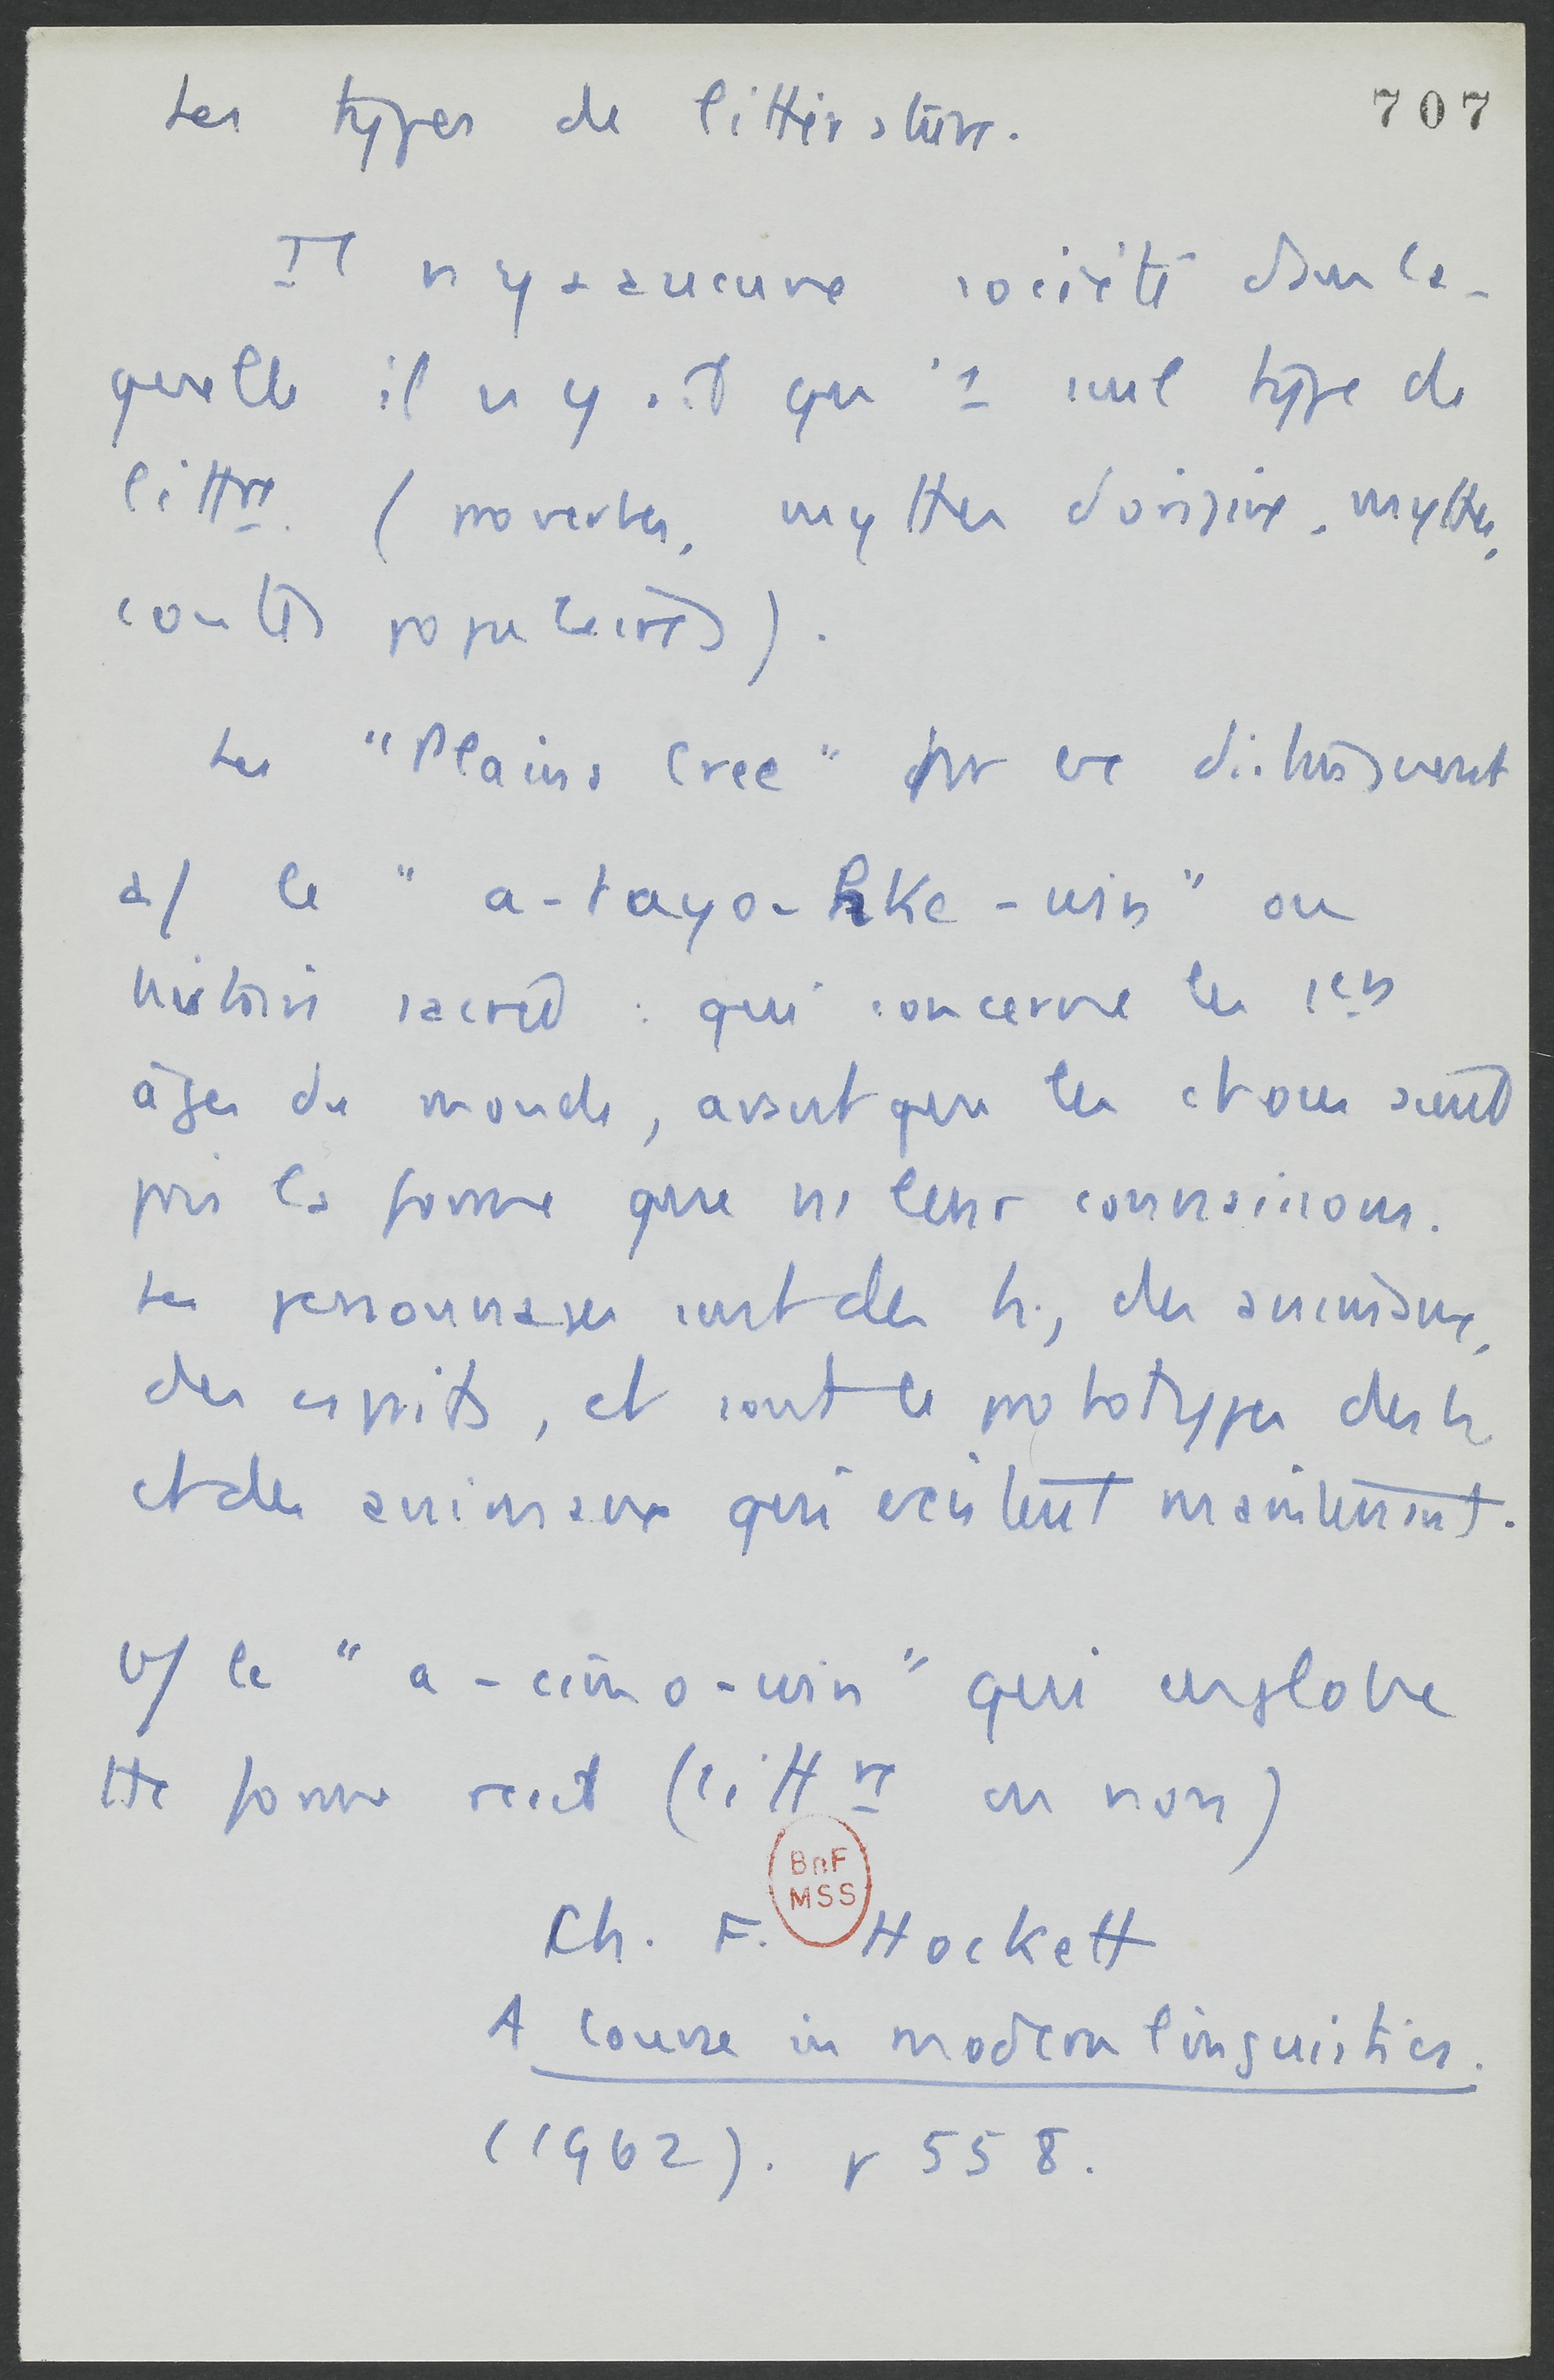 Les types de littérature.
707
Il n'y a aucune société dans la-
quelle il n'y ait qu'1 seul type de
littre. (proverbes, mythes d'origine, mythes,
contes populaires).
Les "Plains Cree" par ex distinguent
a/ le "a-tayo-hke-win" ou
histoire sacrée : qui concerne les 1ers
âges du monde, avant que les choses aient
pris la forme que ns leur connaissons.
Les personnages sont des h., des animaux,
des esprits, et sont les prototypes des h
et des animaux qui existent maintenant.
b/ le "a-cimo-win" qui englobe
tte forme récit (littre ou non)
BnF
MSS
Ch. F. Hockett
A course in modern linguistics.
(1962). p 558.